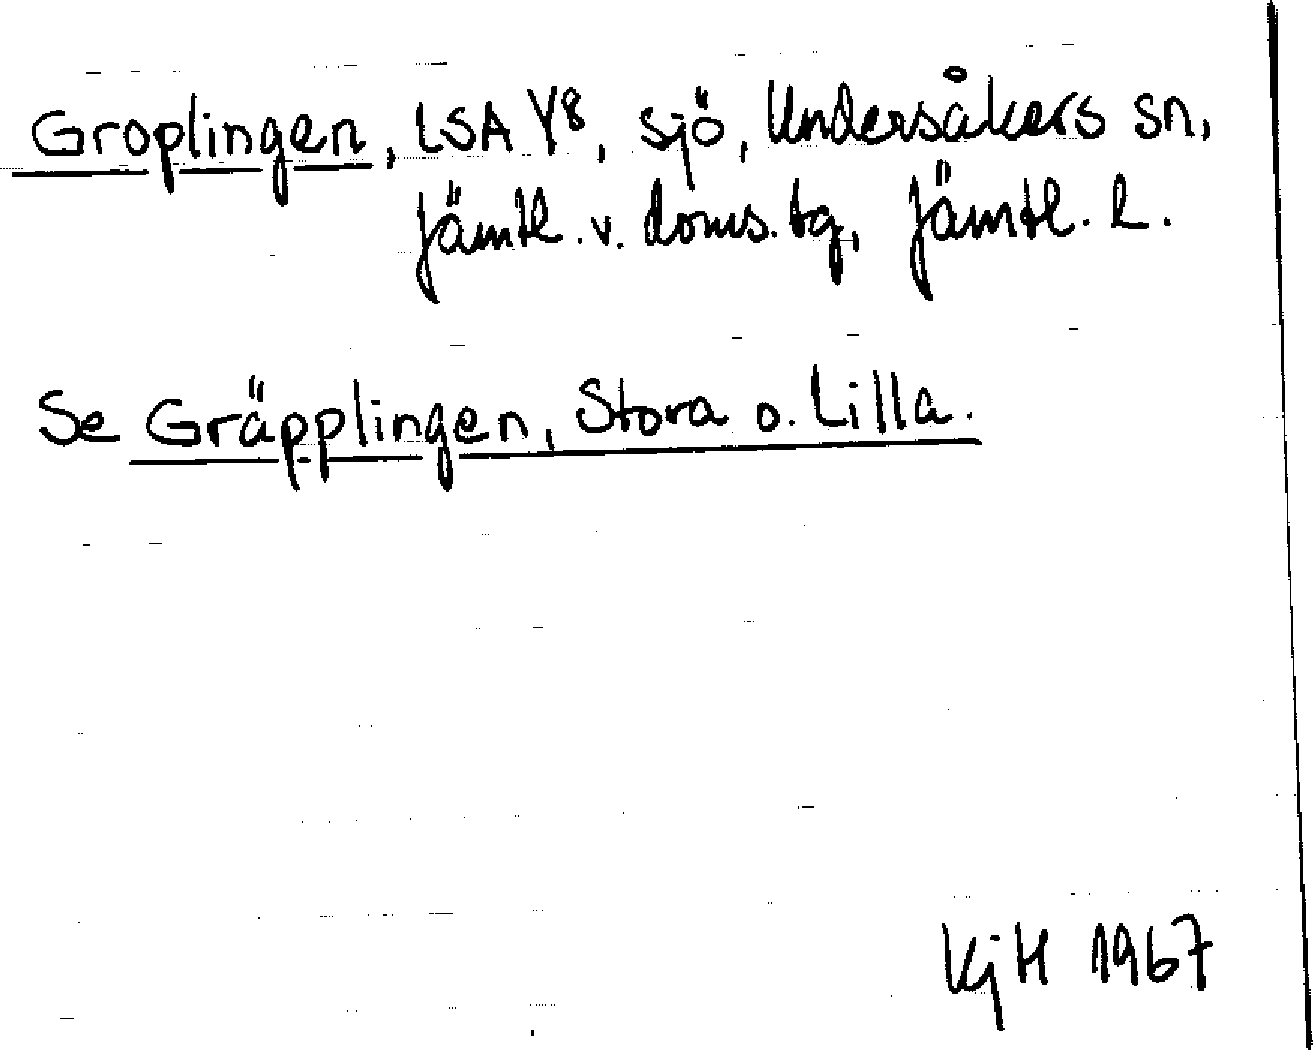 Groplingen, LSA Y8, sjö, Undersåkers sn,
Jämtl. v. doms. tg, Jämtl. l.
Se Gräpplingen, Stora o. Lilla.
KjH 1967